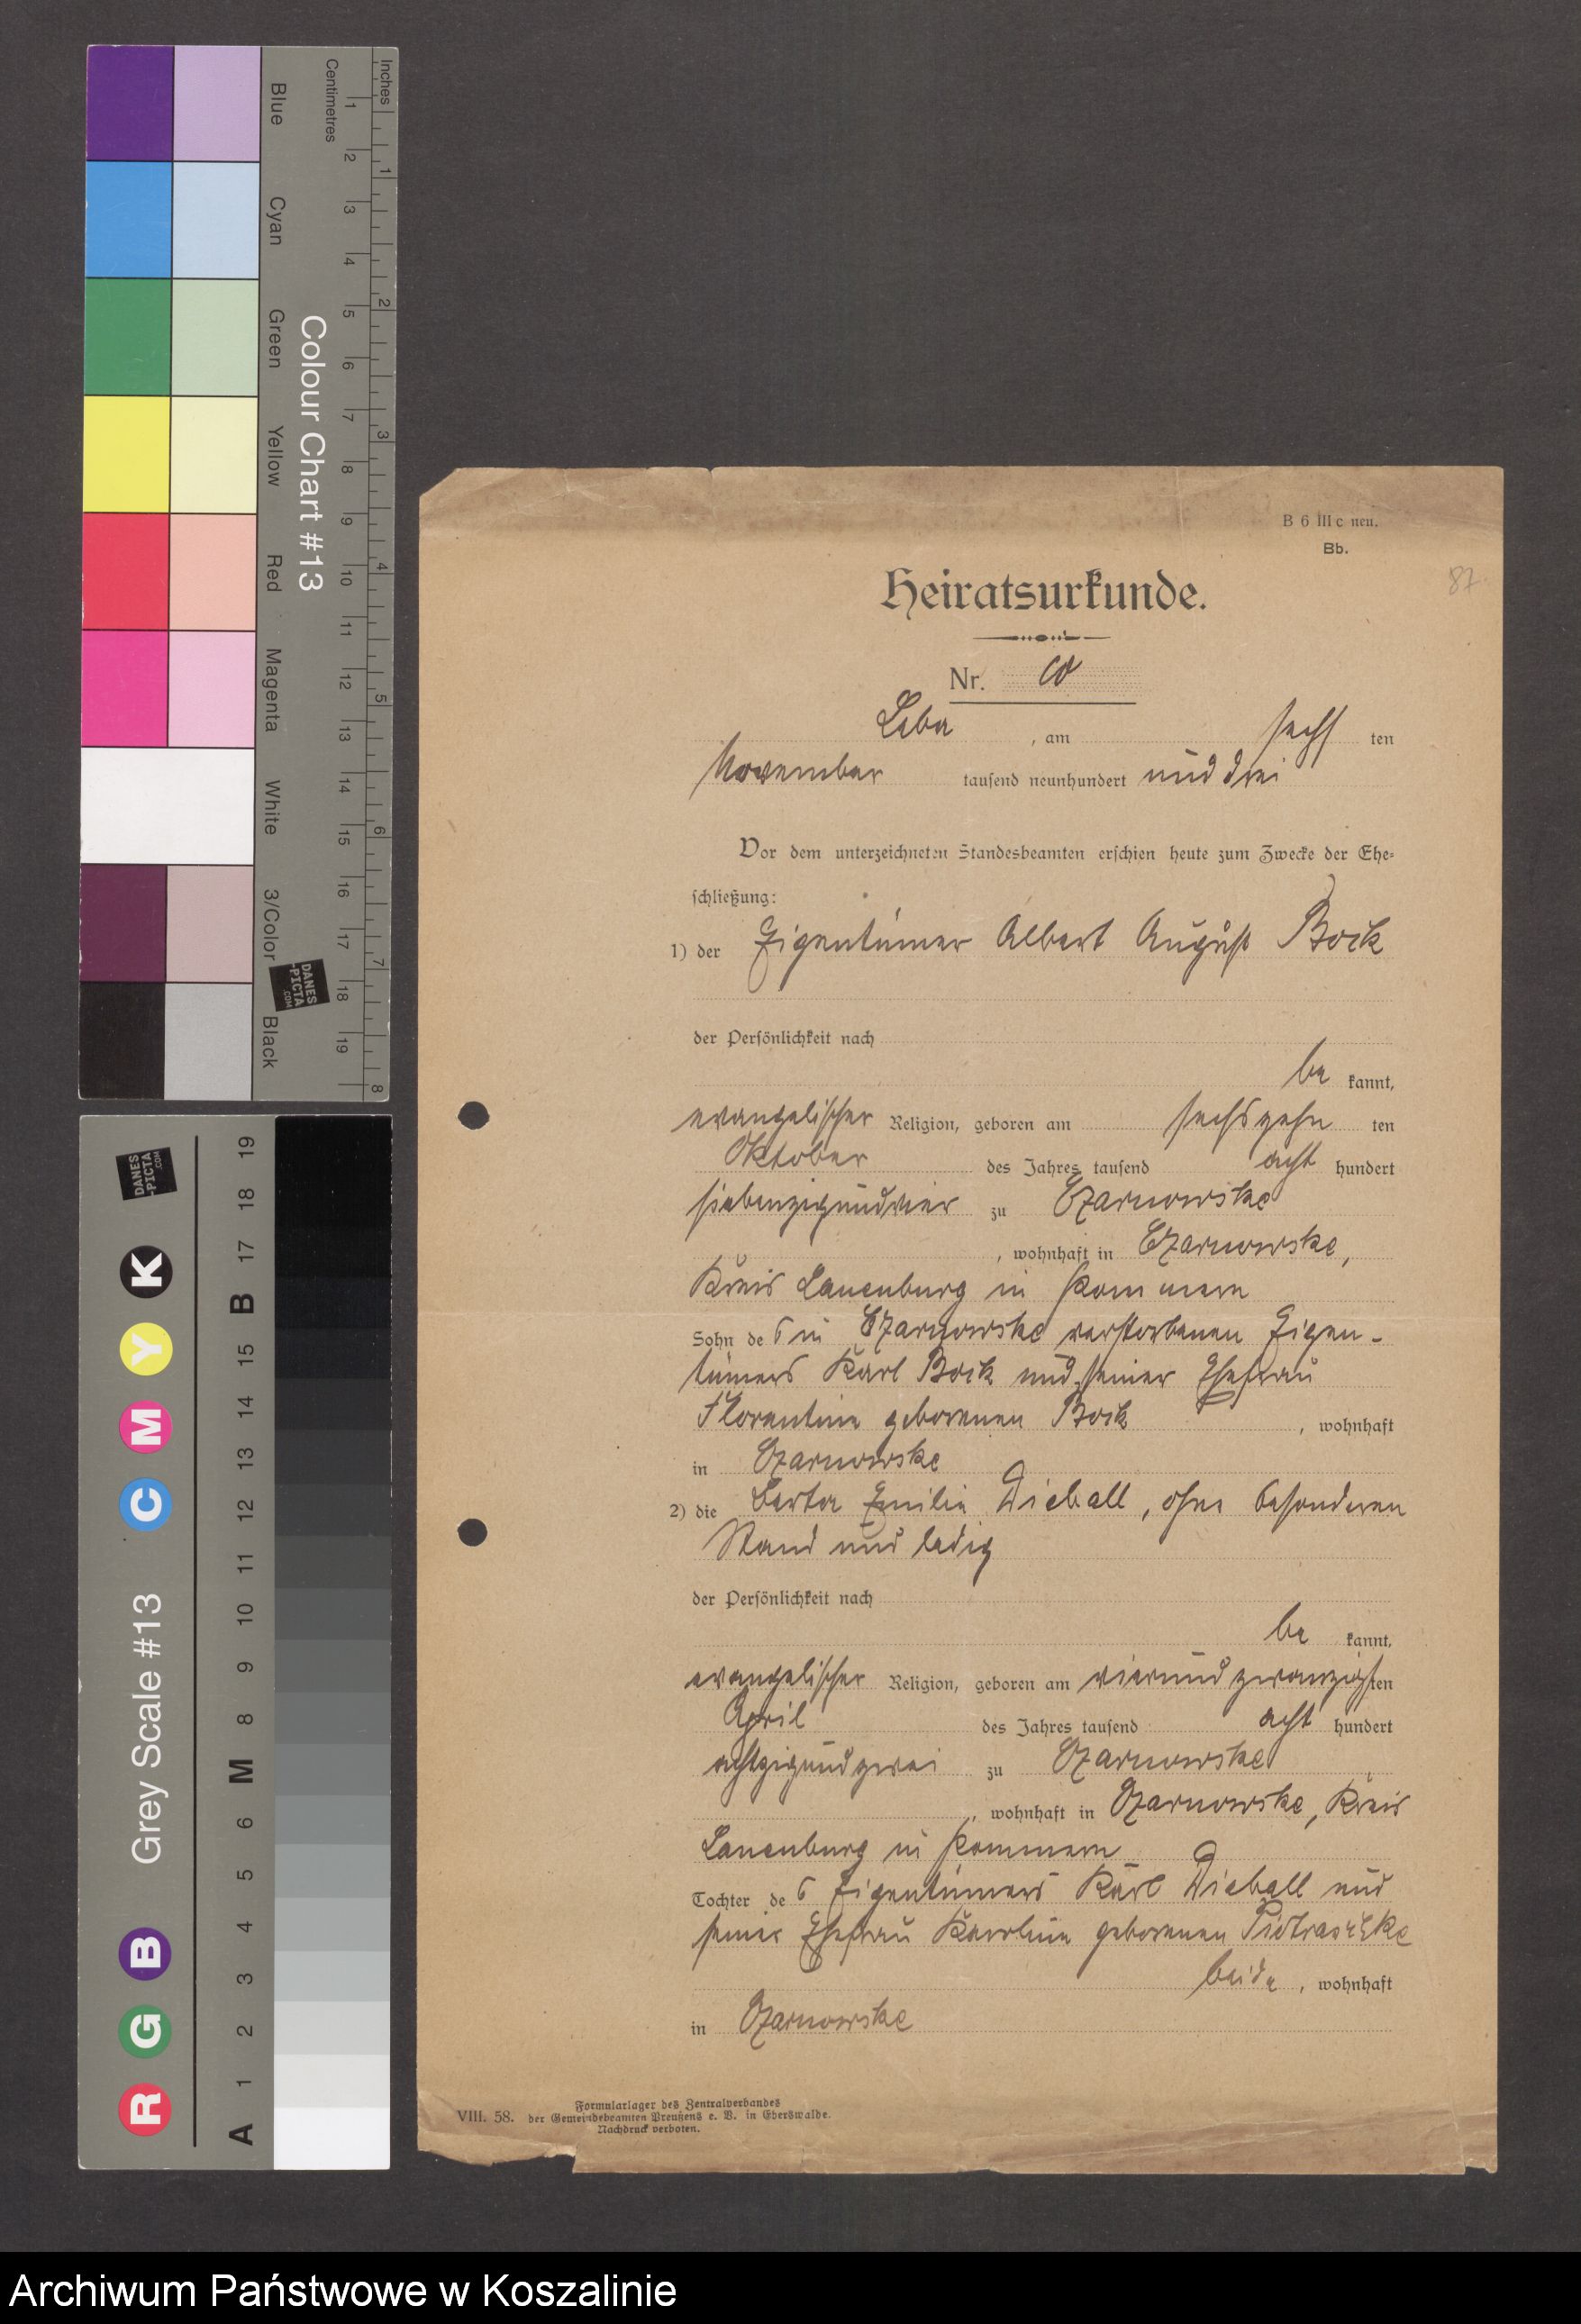 Inches
Centimetres
1 2 3 4 5 6 7 8 9 10 11 12 13 14 15 16 17 18 19
1 2 3 4 5 6 7 8
Colour Chart #13
Blue
Cyan
Green
Yellow
Red
Magenta
White
3/Color
Black
DANES
-PICTA
.COM
DANES
-PICTA
.COM
Grey Scale #13
R G B C M Y K
A 1 2 3 4 5 6 M 8 9 10 11 12 13 14 15 B 17 18 19
B 6 III c neu.
Bb.
87.
Heiratsurkunde.
Nr.
Leba, am sechsten
November tausend neunhundert und drei
Vor dem unterzeichneten Standesbeamten erschien heute zum Zwecke der Ehe-
schließung:
1) der Eigentümer Albert August Bock
der Persönlichkeit nach
be kannt,
evangelischer Religion, geboren am sechszehn ten
Oktober des Jahres tausend acht hundert
siebenzigundvier zu Czarnowske
, wohnhaft in Czarnowske,
Kreis Lauenburg in Pommern
Sohn des in Czarnowske verstorbenen Eigen-
tümers Karl Bock und seiner Ehefrau
Florentine geborenen Bock, wohnhaft
in Czarnowske
2) die Berta Emilie Dieball, ohne besonderen
Stand und ledig
der Persönlichkeit nach
be kannt,
evangelischer Religion, geboren am vierundzwanzigsten
April des Jahres tausend acht hundert
achtzigundzwei zu Czarnowske
, wohnhaft in Czarnowske, Kreis
Lauenburg in Pommern
Tochter des Eigentümers Karl Dieball und
seiner Ehefrau Karoline geborenen Pietraschke
beide, wohnhaft
in Czarnowske
VIII. 58.
Formularlager des Zentralverbandes
der Gemeindebeamten Preußens e. V. in Eberswalde.
Nachdruck verboten.
Archiwum Państwowe w Koszalinie